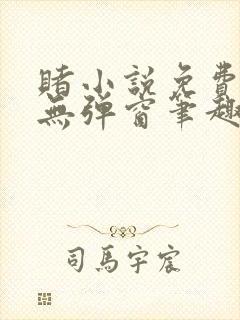 睹小説免費
無彈窗筆趣
司馬宇宸